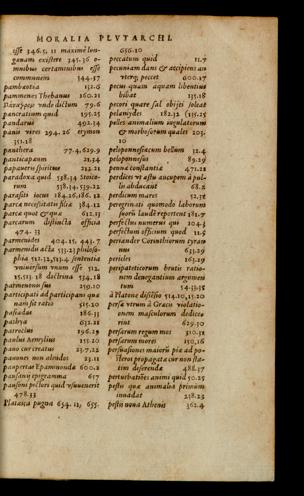 MORALIA PLVTARCHI.
esse 346.5, 11 maximè lon-
gauam existere 345.36 o-
mnibus certaminibus esse
communem 344.57
pambæotia 132.6
pammenes Thebanus 160.21
vnde dictum 79.6
pancratium quid 195.25
pandarus 492.14
panis vires 294.26 etymon
351.28
panthera 77.4, 629.9
panticapæum 21.54
papaueris spiritus 212.21
paradoxa quæd. 538.34 stoico-
rum 538.34, 539.22
parasiti locus 184.26, 186.12
parca necessitatis filia 384.12
parca quot & quæ 612.15
parcarum distincta officia
474.33
parmenides 404.15, 443.7
parmenidis acta 533.23 philoso-
phia 512.32, 513.4 sententia
vniuersum vnum esse 512.
15, 513.18 doctrina 534.18
parmenonis sus 259.10
participati ad participans qua
nam sit ratio 535.20
pasiades 186.33
pathya 632.21
patroclus 196.19
paulus Aemylius 155.20
pauo cur creatus 23.7, 22
pauones non alendos 23.11
paupertas Epaminondæ 600.2
pausaniæ epigramma 617
pausoni pictori quid vsuuenerit
478.33
Plataica pugna 654.12, 655.
656.10
peccatum quid 11.7
pecuniam dans & accipiens an
vterq; peccet 600.17
pecus quum aquam libentius
bibat 135.18
pecori quare sal obijci soleat
pelamydes 182.23, 615.25
pelles animalium iugulatorum
& morbosorum quales 203.
10
peloponnesiacum bellum 32.4
peloponnesus 89.29
pennæ constantia 471.12
perdices vt astu aucupem à pul-
lis abducant 68.2
perdicum mares 52.15
peregrinatis quomodo laborum
suorū laudē reportent 181.7
perfectus numerus qui 104.3
perfectum officium quod 11.5
periander Corinthiorum tyran
nus 163.29
pericles 163.29
peripateticorum brutis ratio-
nem denegantium argumen
tum 54.33, 35
à Platone dissensio 514.10, 15.20
persæ vtrum à Græcis violatio-
onem masculorum didice-
rint 629.30
persarum regum mos 310.31
persarum mores 150.16
persuasiones maiorū pie ad po-
steros propagatæ cur non sta-
tim deserendæ 488.37
perturbatiões animi quid 50.25
pestis quæ animalia primùm
inuadat 238.23
pestis noua Athenis 362.4